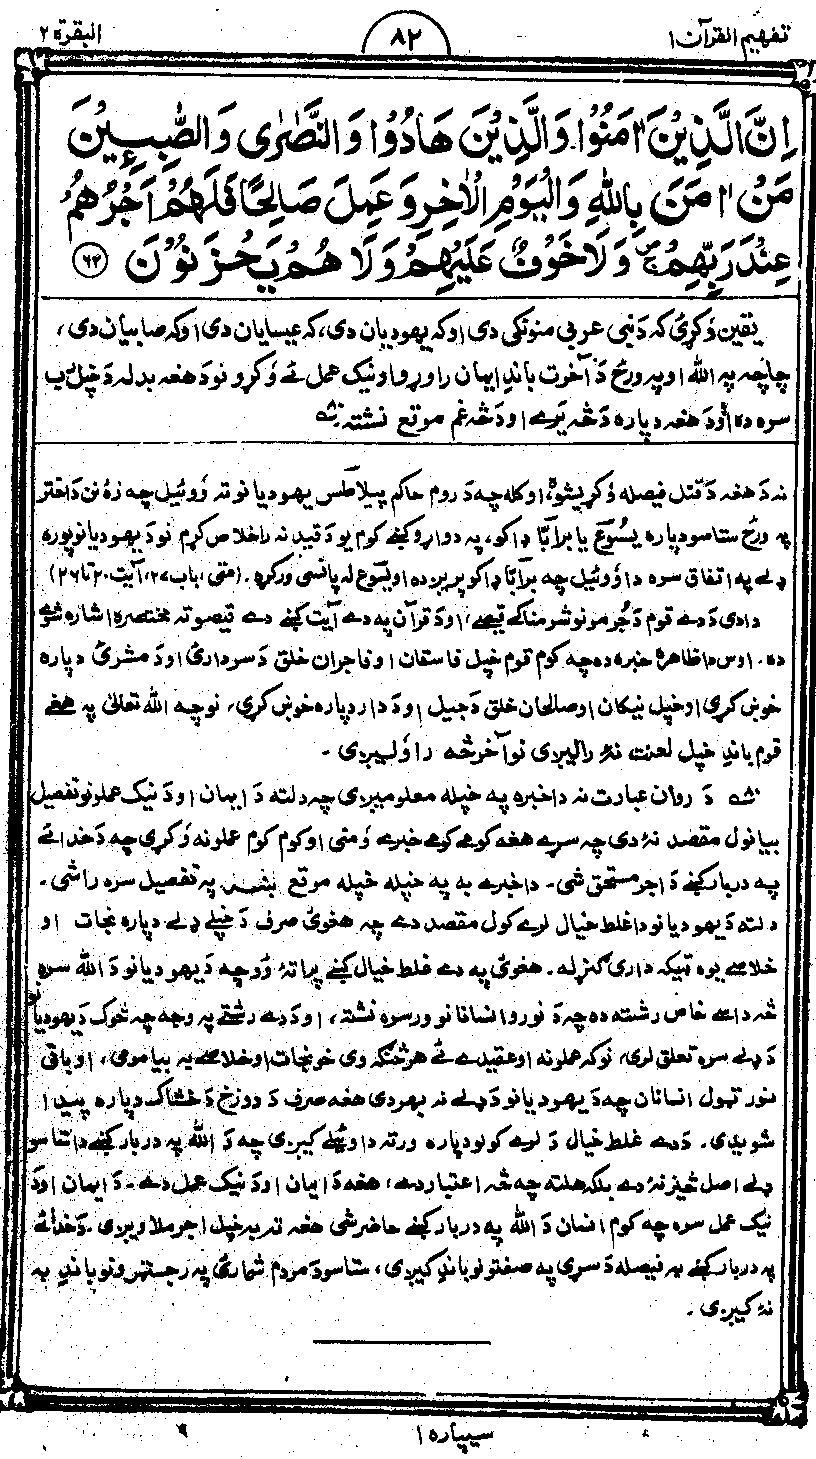 تفهيم القرآن ١
٨٢
البقرة ٢
اِنَّ الَّذِيْنَ اٰمَنُوْا وَالَّذِيْنَ هَادُوْا وَالنَّصٰرٰى وَالصّٰبِـِٕيْنَ
مَنْ اٰمَنَ بِاللّٰهِ وَالْيَوْمِ الْاٰخِرِ وَعَمِلَ صَالِحًا فَلَهُمْ اَجْرُهُمْ
عِنْدَ رَبِّهِمْ ۚ وَلَا خَوْفٌ عَلَيْهِمْ وَلَا هُمْ يَحْزَنُوْنَ ﴿٦٢﴾
يقين وَكړئ كه دَنبى عربى منونكى دى اوكه يهوديان دى، كه عيسايان دى اوكه صابيان دى،
چاچه په الله اوپه ورځ دَ آخرت باندِ ايمان راوړ واونيک عمل ئے وَكړو نودَ هغه بدله دَخپل رب
سره ده اودَ هغه دپاره دَڅه يَرے اودَڅه غم موقع نشته
نه دَهغه دَقتل فيصله وَكړيشوه، اوكله چه دَ روم حاكم پيلاطس يهوديانوته وَوئيل چه زهٔ نن دَاختر
په ورځ ستاسودپاره يسُوَع يا برابّا ډاكو، په دواړوكښے كوم يو دَقيد نه راخلاص كړم نودَ يهوديانوپوره
ډلے په اتفاق سره دا وَوئيل چه برابّا ډاكو پريږده او يسوع له پانسى وركړه. (متى، باب ٢٧، آيت ٢٠ تا ٢٦)
دادى دَدے قوم دَجُرمونوشرمناكے قيصے، اودَ قرآن په دے آيت كښے دے قيصوته مختصره اشاره شوے
ده. اوس داظاهره خبره ده چه كوم قوم خپل فاسقان اوفاجران خلق دَسردارئ اودَ مشرئ دپاره
خوښ كړى اوخپل نيكان اوصالحان خلق دَجيل اودَ دار دپاره خوښ كړى، نوچه الله تعالىٰ په هغے
قوم باندِ خپل لعنت نهٔ راليږدى نوآخرڅه راوَليږدى.
دَ روان عبارت نه داخبره په خپله معلوميږدى چه دلته دَ ايمان اودَ نيک عملونوتفصيل
بيانول مقصد نهٔ دى چه سړے هغه كومے كومے خبرے وَمنى اوكوم كوم عملونه وَكړى چه دَخدائے
په درباركښے دَاجرمستحق شى. داخبرے به په خپله خپله موقع په تفصيل سره راشى.
دلته دَيهوديانوداغلط خيال لرے كول مقصد دے چه هغوئ صرف دَخپلے ډلے دپاره نجات او
خلاصے يوه ټيكه دارى ګنړله. هغوئ په دے غلط خيال كښے پراتهٔ وُوچه دَيهوديانو دَ الله سره
څه داسے خاص رشته ده چه دَ نوروانسانانو ورسره نشته، اودَدے رشتے په وجه چه څوک دَيهوديانو
دَډلے سره تعلق لرى، نوكه عملونه اوعقيدے ئے هرڅنګه وى خونجات اوخلاصے به بيامومى، اوباقى
نور ټهول انسانان چه دَ يهوديانو دَډلے نه بهردى هغه صرف دَ دوزخ دَخشاک دپاره پيدا
شويدى. دَدے غلط خيال دَ لرے كولودپاره ورته داوئيلے كيږدى چه دَ الله په درباركښے داستاسو
ډلے اصل څيزنهٔ دے بلكه هلته چه څه اعتباردے، هغه دَ ايمان اودَ نيک عمل دے. دَ ايمان اودَ
نيک عمل سره چه كوم انسان دَ الله په درباركښے حاضرشى هغه ته به خپل اجرملاويږدى. دَخدائے
په درباركښے به فيصله دَسړى په صفتونوباندِ كيږدى، ستاسودَمردم شمارئ په رجسټرونوباندِ به
نهٔ كيږدى.
سيپاره ١